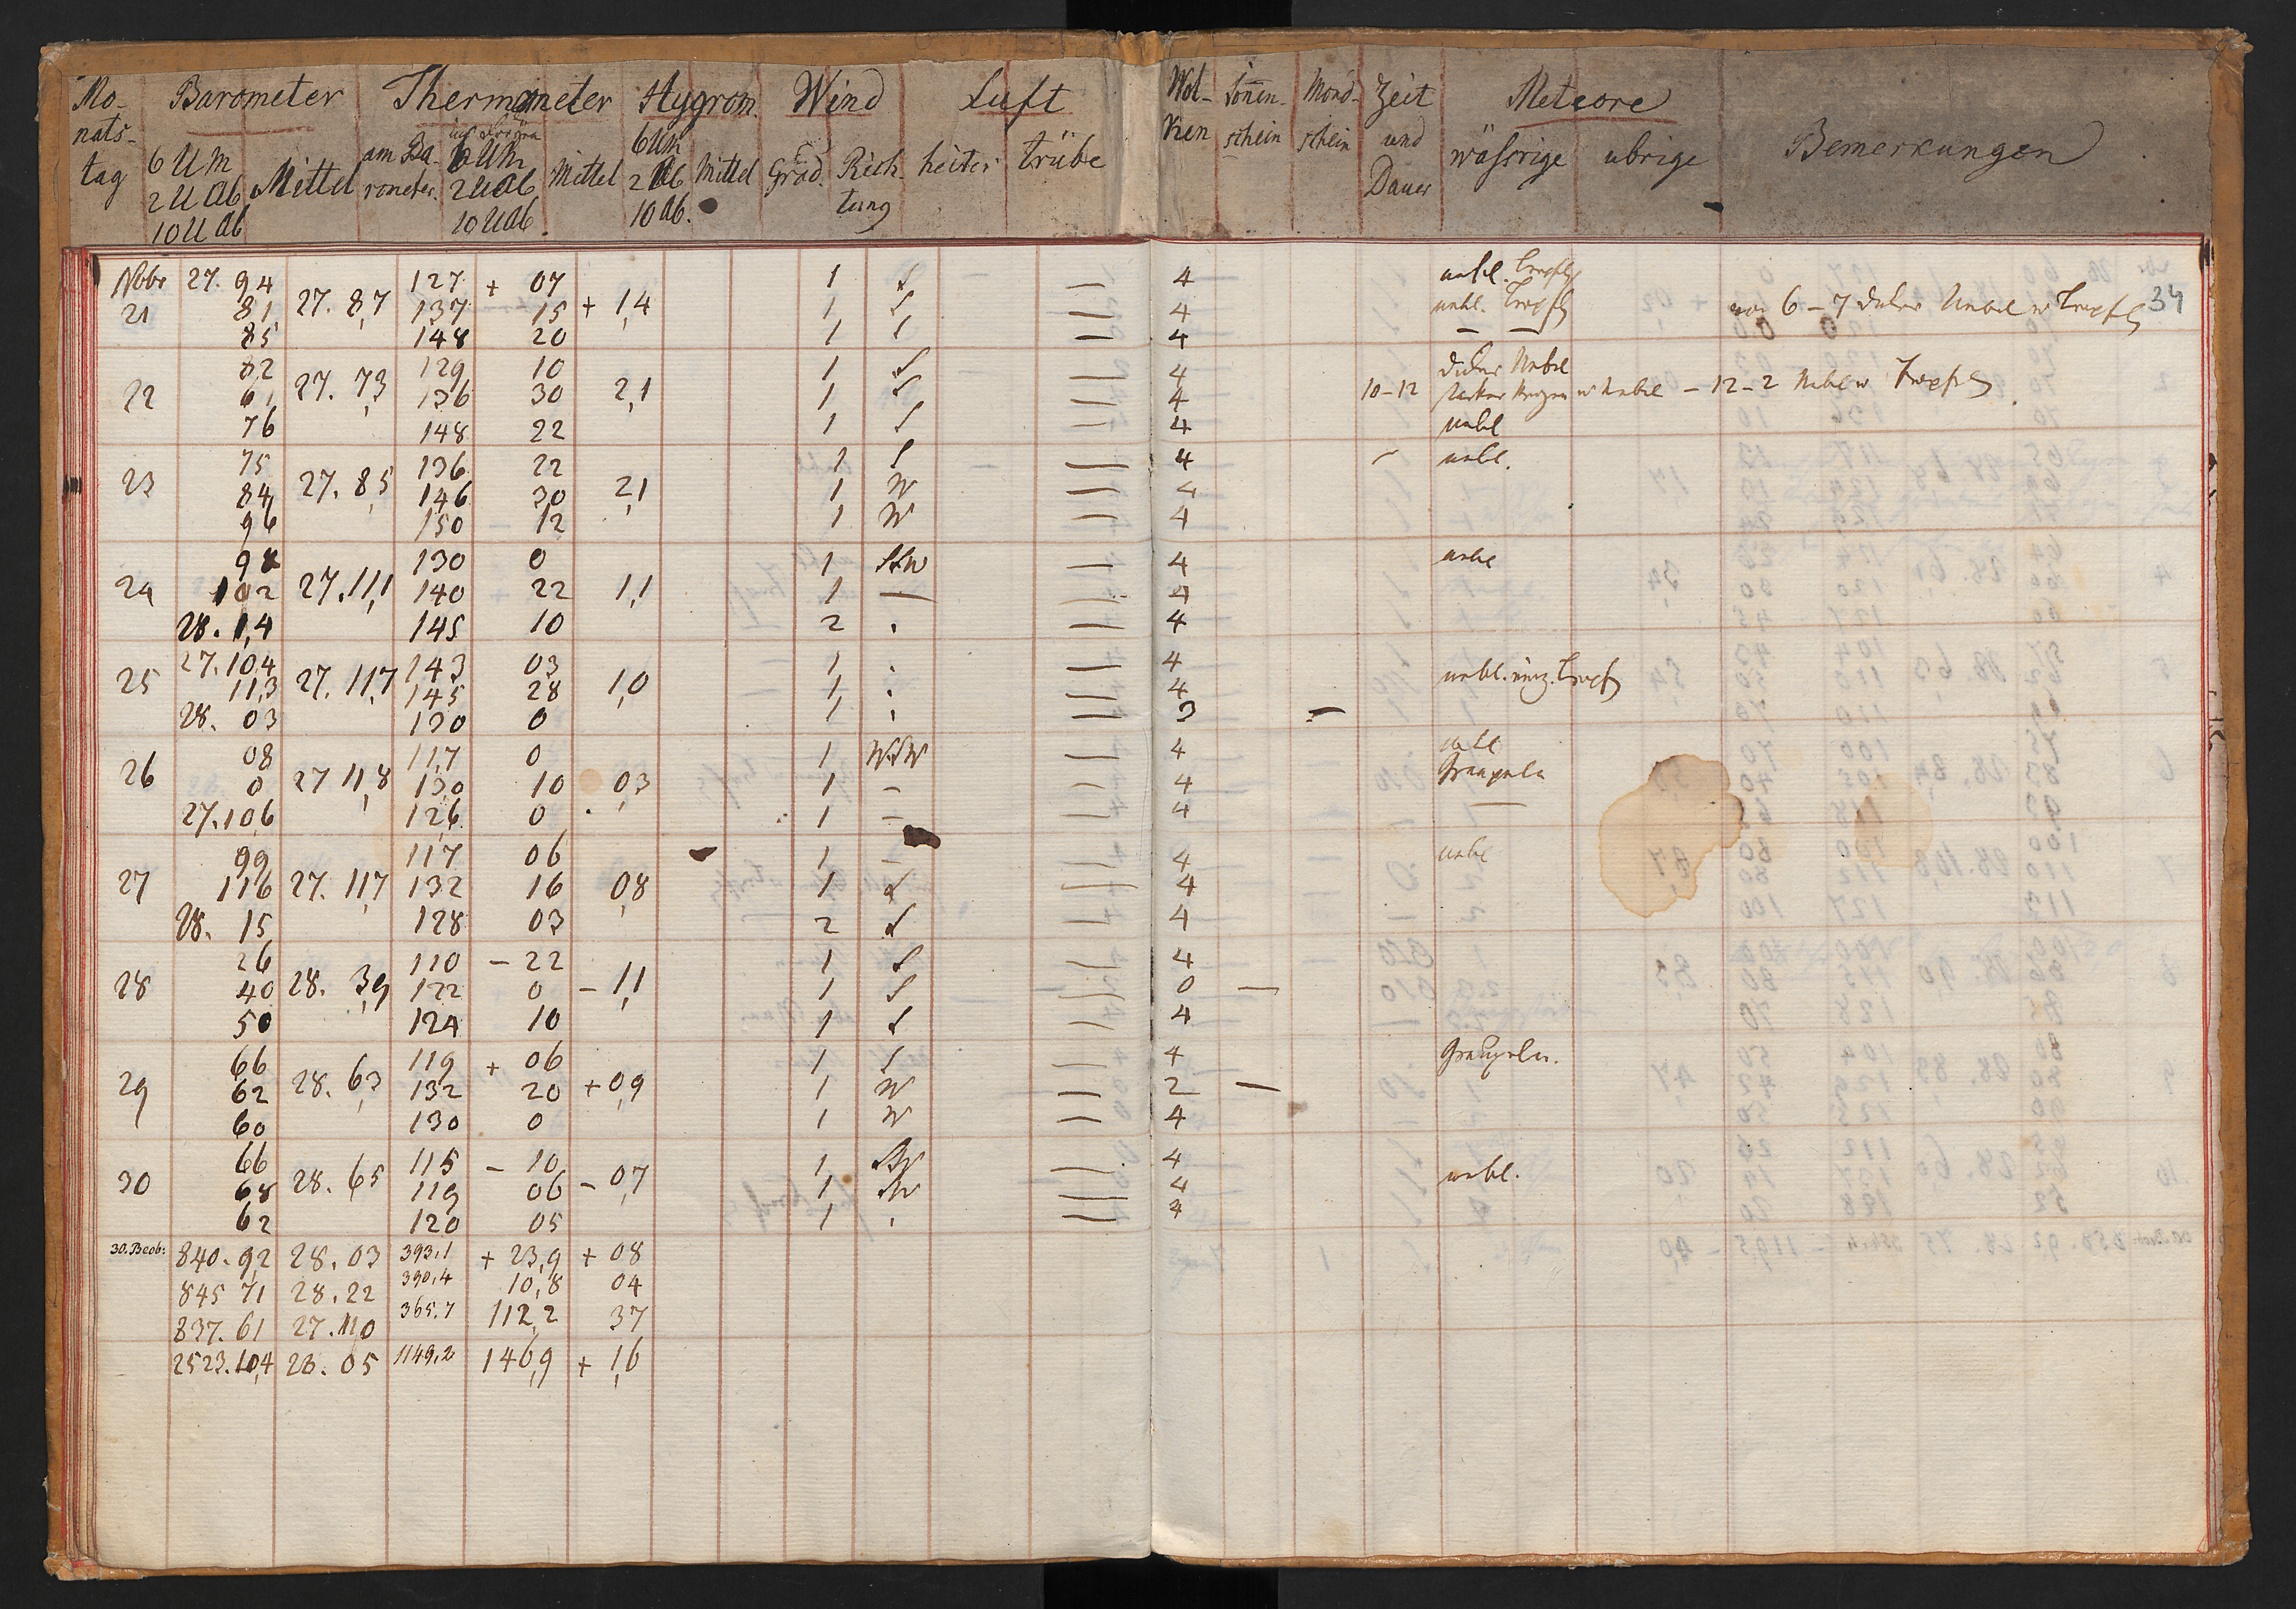 Mo- Barometer Thermometer Hygrom. Wind Luft Wol- Soñen- Mond- Zeit Meteore
nats- 6 Uhr am Ba- 6 Uhr 6 Uhr Grad. Rich- heiter trübe ken schein schein und wäßrige ubrige Bemerkungen
tag 2 U Ab Mittel rometer. 2 U Ab Mittel 2 Ab Mittel tung Dauer
10 U Ab 10 U Ab. 10 Ab.
Nobr 27. 94 127 + 07 1 S — 4 nebl. Tropfg
21 81 27. 8,7 137 15 + 1,4 1 S — 4 nebl. Tropfg 6 – 7 Nebel Tropfg 34
85 148 20 1 S — 4 — —
82 129 10 1 S — 4 dicker Nebel
22 61 27. 7,3 136 30 2,1 1 S — 4 10–12 starker Regen Nebel – 12 – 2 Nebel Tropfg
76 148 22 1 S — 4 nebel
75 136 22 1 S — 4 – nebl.
23 84 27. 8,5 146 30 2,1 1 W — 4
96 150 – 12 1 W — 4
98 130 0 1 SSW — 4 nebe
24 102 27. 11,1 140 22 1,1 1 — — 4
28. 1,4 145 10 2 . — 4
27. 10,4 143 03 1 . — 4
25 11,3 27. 11,7 145 28 1,0 1 . — 4 nebl. einz. Tropf
28. 03 130 0 1 . — 3 —
08 117 0 1 WSW — 4 nebl
26 0 27 11,8 130 10 0,3 1 – — 4 Graupeln
27. 106 126 0 1 – — 4 —
99 117 06 1 – — 4 nebel
27 116 27. 11,7 132 16 0,8 1 S — 4
28. 15 128 03 2 S — 4
26 110 – 22 1 S — 4
28 40 28. 3,9 122 0 – 1,1 1 S — 0 —
50 124 10 1 S — 4
66 119 + 06 1 S — 4 Graupeln.
29 62 28. 6,3 132 20 + 0,9 1 W — 2 —
60 130 0 1 W — 4
66 115 – 10 1 SW — 4
30 68 28. 65 119 06 – 0,7 1 SW — 4 nebl.
62 120 05 1 . — 4
30. Beob: 840. 9,2 28. 03 393,1 + 23,9 + 08
845 71 28. 22 390,4 10,8 04
837. 61 27. 110 365,7 112,2 37
2523. 10,4 28. 05 1149,2 146,9 + 1,6